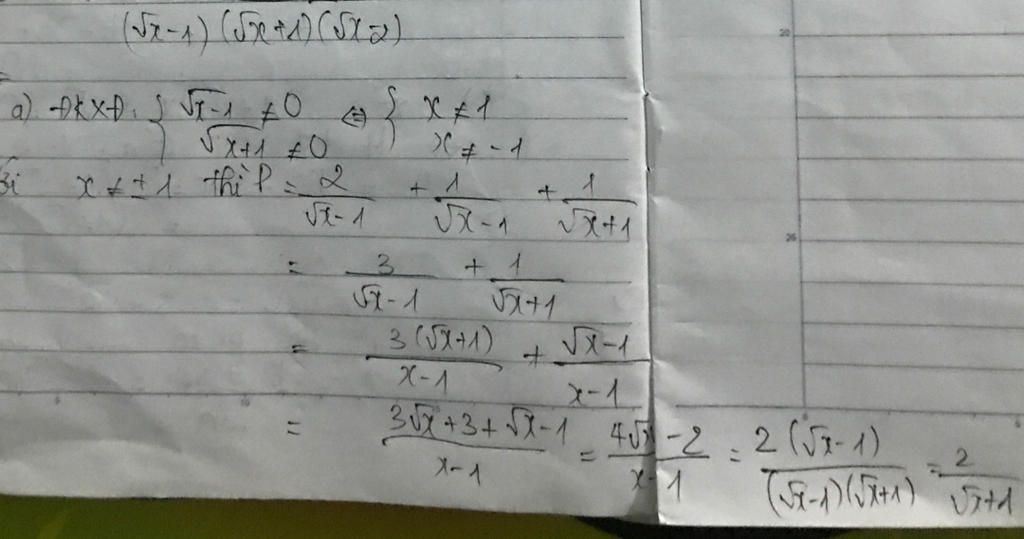 (√x-1)(√x+1)(√x-2)
a) ĐKXĐ: { √x-1 ≠ 0 ⇔ { x ≠ 1
√x+1 ≠ 0 x ≠ -1
x ≠ ±1 thì P = 2/(√x-1) + 1/(√x-1) + 1/(√x+1)
= 3/(√x-1) + 1/(√x+1)
= 3(√x+1)/(x-1) + (√x-1)/(x-1)
= (3√x+3+√x-1)/(x-1) = (4√x-2)/(x-1) = 2(√x-1)/((√x-1)(√x+1)) = 2/(√x+1)